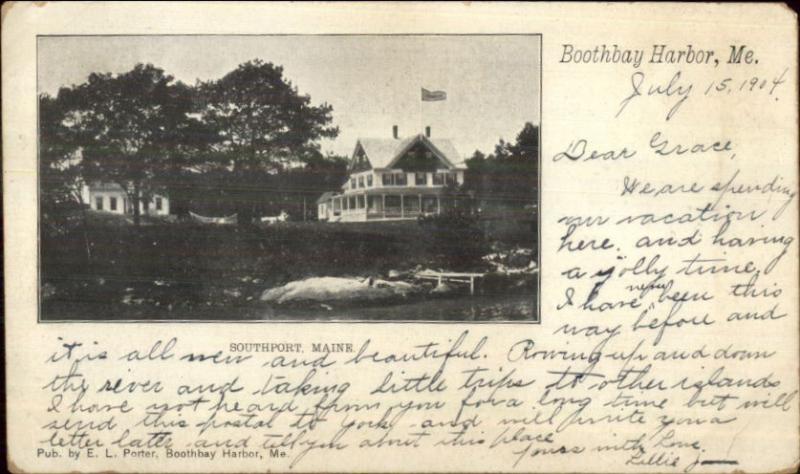 Boothbay Harbor, Me.
July 15, 1904.
Dear Grace,
We are spending
our vacation
here. and having
a jolly time.
I have never been this
way before and
SOUTHPORT, MAINE.
it is all new and beautiful. Rowing up and down
the river and taking little trips to other islands
I have not heard from you for a long time but will
send this postal to you and will write you a
letter later and tell you about this place
Yours with Love.
Lillie
Pub. by E. L. Porter, Boothbay Harbor, Me.